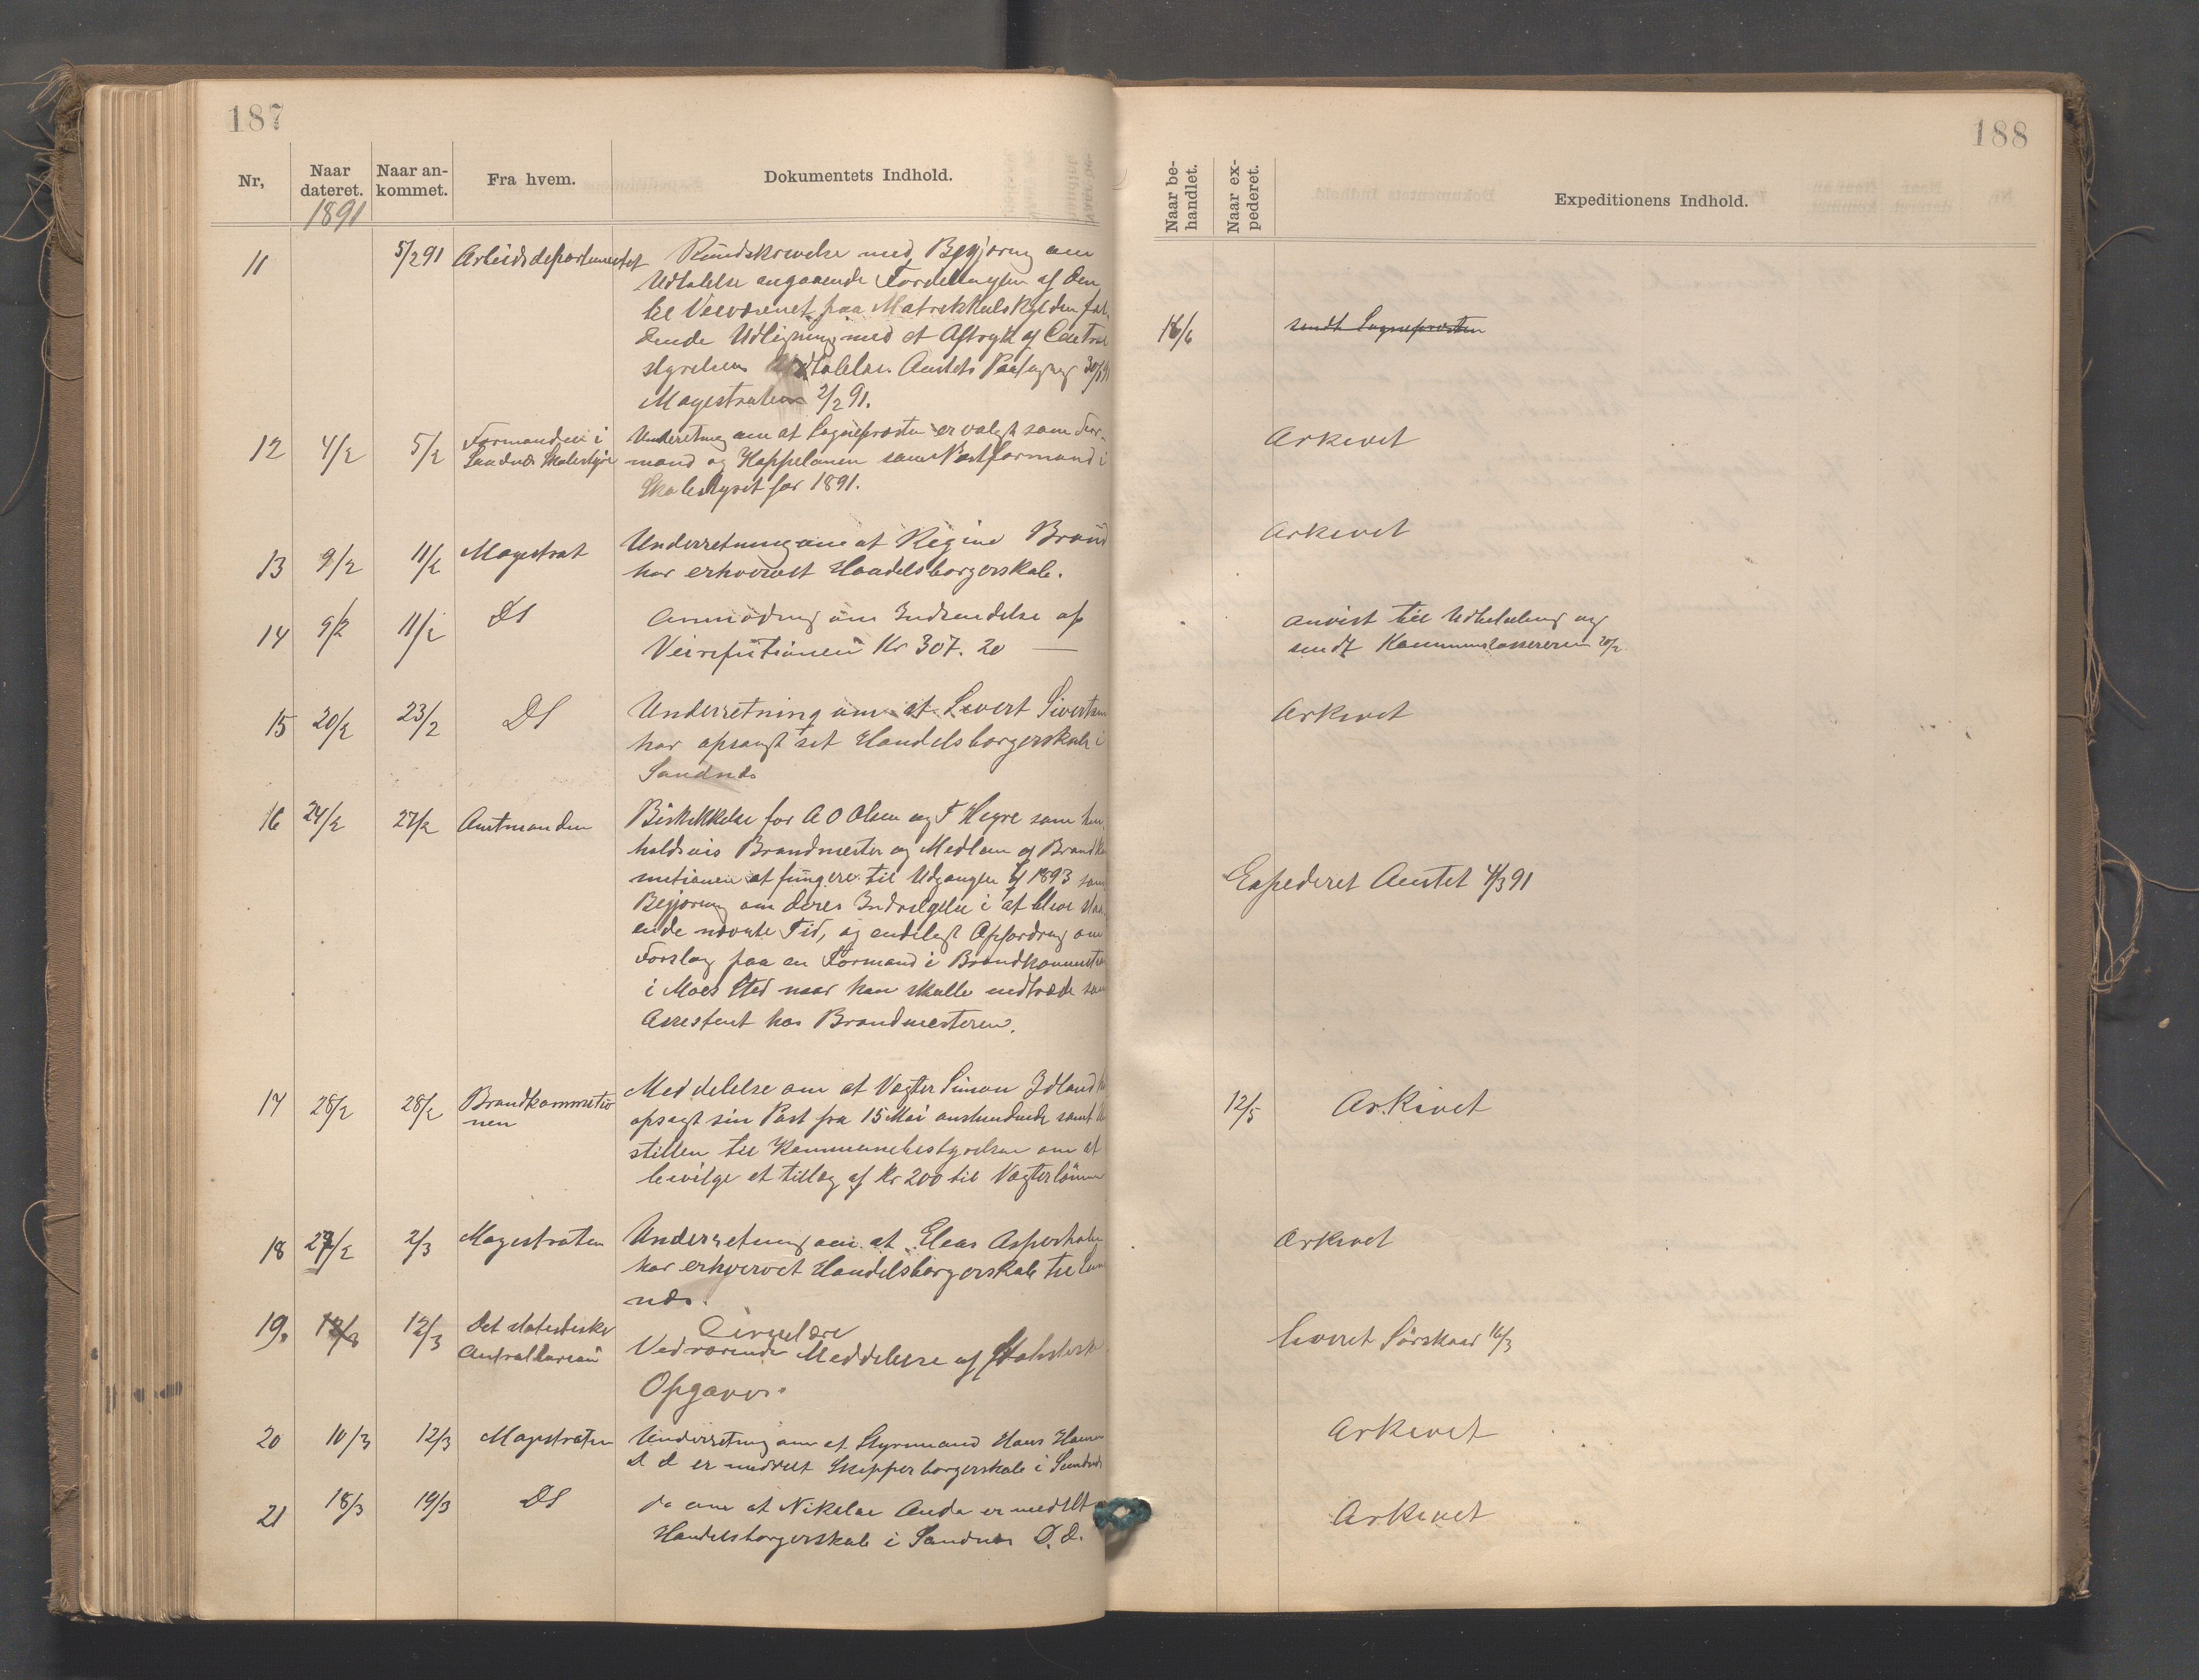 187
Nr,
Naar dateret.
Naar ankommet.
Fra hvem.
Dokumentets Indhold.
1891
11 5/2 91 Arbeidsdepartementet Rundskrivelse med Begjæring om
Udtalelse angaaende Fordelingen af den
til Veivæsenet paa Matrikkelskylden fal-
dende Udligning med et Aftryk af Central
styrelsens Udtalelse. Amtets Paategning 30/1 91
Magistraten 2/2 91.
12 4/2 5/2 Formanden i Underretning om at Sognepræsten er valgt som For-
Sandnæs Skolestyre mand og Kappelanen som Viceformand i
Skolestyret for 1891.
13 9/2 11/2 Magistrat Underretning om at Regine Brand
har erhvervet Handelsborgerskab.
14 9/2 11/2 DS Anmodning om Indsendelse af
Veirefutionen Kr 307. 20 —
15 20/2 23/2 DS Underretning om at Sivert Sivertsen
har opsagt sit Handelsborgerskab i
Sandnæs
16 24/2 27/2 Amtmanden Beskikkelse for A O Olsen og T Hegre som hen-
holdsvis Brandmester og Medlem af Brandkom
misionen at fungere til Udgangen af 1893 samt
Begjæring om deres Indvilgelse i at blive staa-
ende nævnte Tid, og endeligt Opfordring om
Forslag paa en Formand i Brandkommisionen
i Moes Sted naar han skulle nedtræde som
Assistent hos Brandmesteren.
17 28/2 28/2 Brandkommisio Meddelelse om at Vægter Simon Idland har
nen opsagt sin Post fra 15 Mai anstundende samt
stillen til Kommunebestyrelsen om at
bevilge et tillæg af Kr 200 til Vægterlønnen
18 27/2 2/3 Magistraten Underretning om at Elias Aspersholm
har erhvervet Handelsborgerskab til Sand
næs.
19. 12/3 12/3 Det statistiske Cirqulære
Centralbureau Vedrørende Meddelelse af Statistiske
Opgaver.
20 10/3 12/3 Magistraten Underretning om at Styrmand Hans Hansen
d d er meddelt Skipperborgerskab i Sandnæs
21 18/3 19/3 DS do om at Nikolai Anda er meddelt
Handelsborgerskab i Sandnæs D. d.
188
Naar behandlet.
Naar expederet.
Expeditionens Indhold.
16/6 sendt Sognepræsten
Arkivet
Arkivet
Anvist til Udbetaling og
sendt Kommunekassereren 20/2
Arkivet
Expederet Amtet 4/3 91
12/5 Arkivet
Arkivet
leveret Sørskaar 16/3
Arkivet
Arkivet